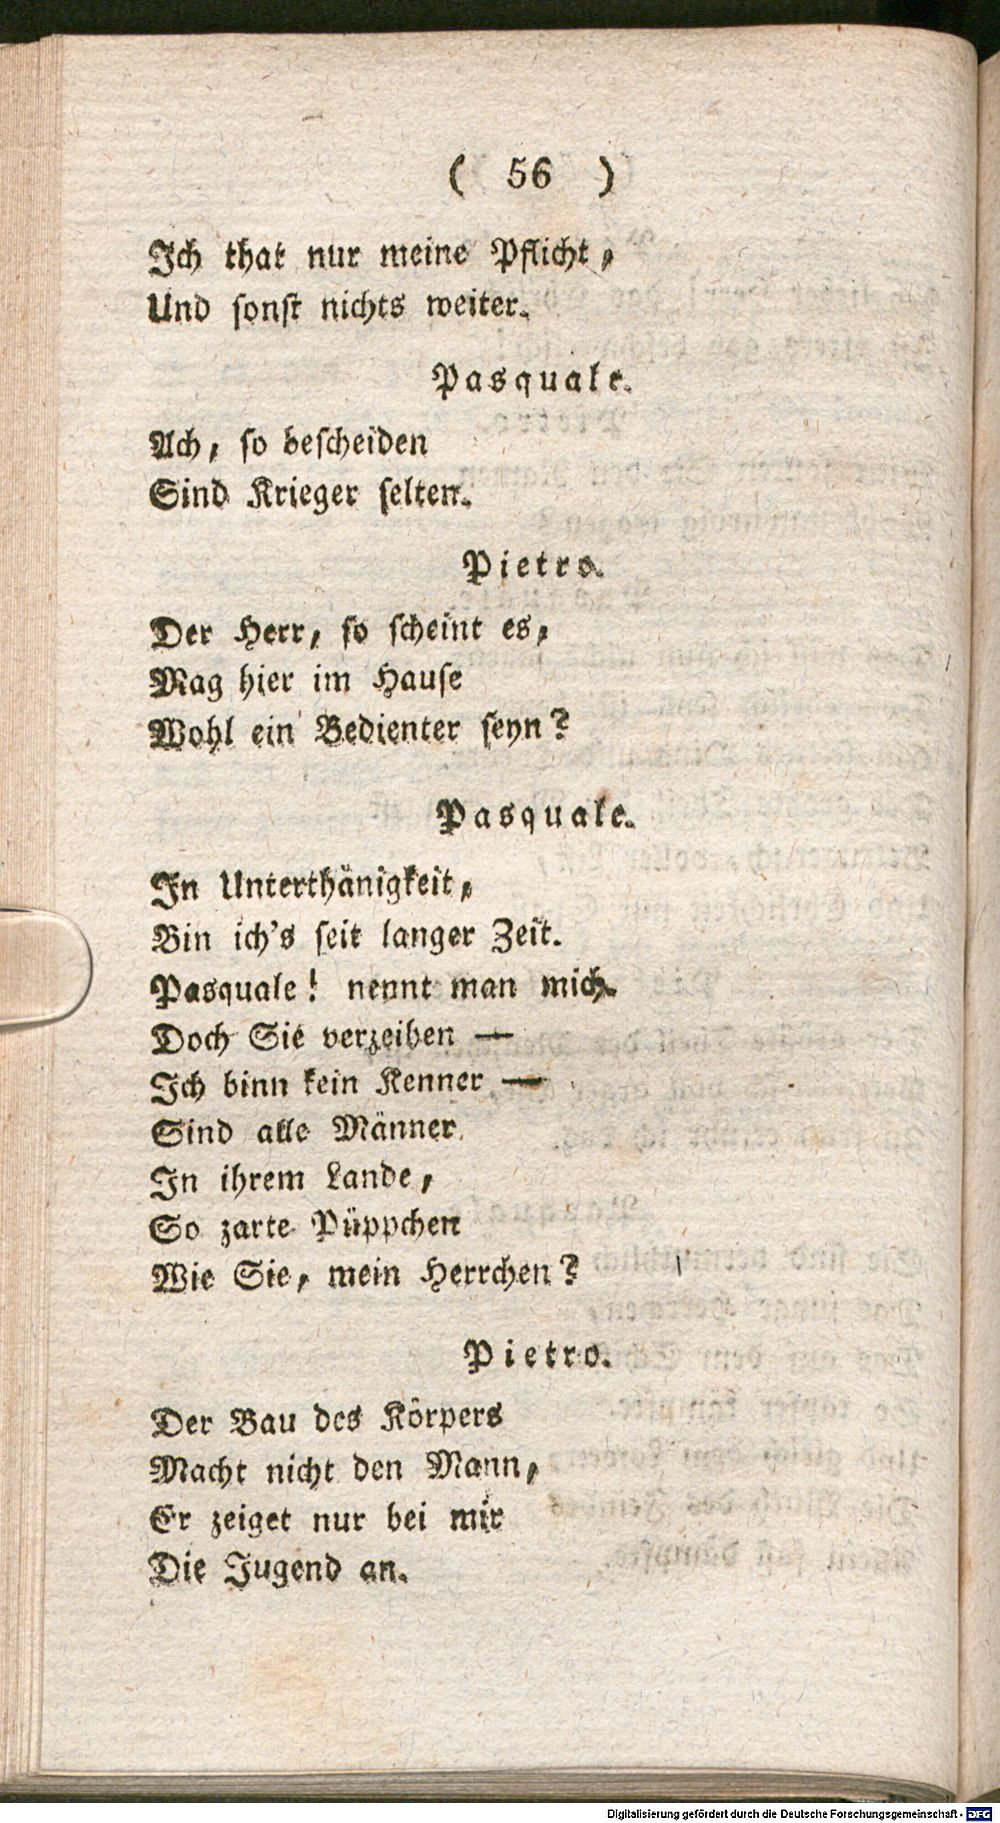 ( 56 )
Ich that nur meine Pflicht,
Und sonst nichts weiter.
Pasquale.
Ach, so bescheiden
Sind Krieger selten.
Pietro.
Der Herr, so scheint es,
Mag hier im Hause
Wohl ein Bedienter seyn?
Pasquale.
In Unterthänigkeit,
Bin ich's seit langer Zeit.
Pasquale! nennt man mich.
Doch Sie verzeihen —
Ich binn kein Kenner —
Sind alle Männer
In ihrem Lande,
So zarte Püppchen
Wie Sie, mein Herrchen?
Pietro.
Der Bau des Körpers
Macht nicht den Mann,
Er zeiget nur bei mir
Die Jugend an.
Digitalisierung gefördert durch die Deutsche Forschungsgemeinschaft - DFG